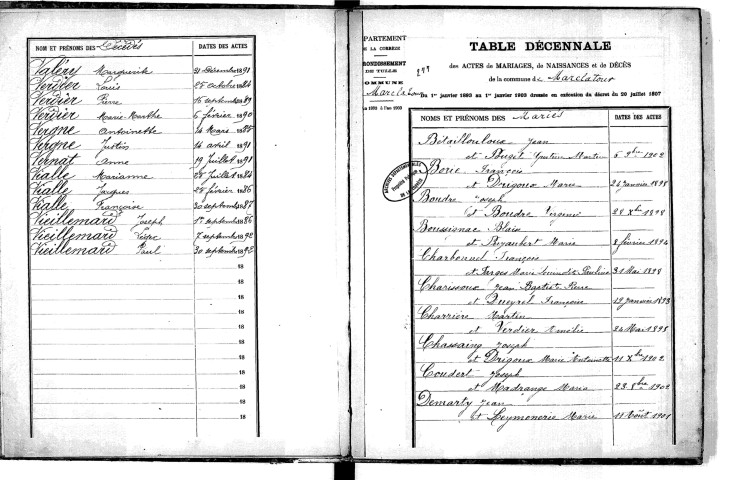 NOM ET PRÉNOMS DES Décédés DATES DES ACTES
Valéry Marguerite 31 Décembre 1891
Verdier Louis 25 octobre 1884
Verdier Pierre 16 septembre 1889
Verdier Marie-Marthe 6 février 1890
Vergne Antoinette 14 Mars 1885
Vergne Justin 14 avril 1891
Vernat Anne 19 juillet 1891
Vialle Marianne 28 Juillet 1884
Vialle Jacques 28 février 1886
Vialle Françoise 30 septembre 1887
Vieillemard Joseph 1er septembre 1886
Vieillemard 7 septembre 1892
Vieillemard Paul 30 septembre 1892
18
18
18
18
18
18
18
18
18
18
18
PARTEMENT
DE LA CORRÈZE
RRONDISSEMENT
DE TULLE
COMMUNE
Marclatour
TABLE DÉCENNALE
des ACTES de MARIAGES, de NAISSANCES et de DÉCÈS
de la commune de Marclatour
Du 1er janvier 1893 au 1er janvier 1903 dressée en exécution du décret du 20 juillet 1807
NOMS ET PRÉNOMS DES Mariés DATES DES ACTES
Bétaillouloux Jean
et Pouget Martin 6 9bre 1902
Borie François
et Drigoux Marie 26 janvier 1898
Boudre Joseph
et Boudre 28 Xbre 1898
Boussignac Blaise
et Marie 8 février 1894
Charbonnel François
et Farges Marie Pauline 31 Mai 1898
Charissoux Jean Baptiste Pierre
et Dueyrel Françoise 12 janvier 1893
Charrière Martin
et Verdier Amélie 24 Mai 1898
Chassaing Joseph
et Drigoux Marie Antoinette 11 Xbre 1902
Coudert Joseph
et Madrange Maria 23 8bre 1902
Demarty Jean
et Leymonerie Marie 11 Août 1901